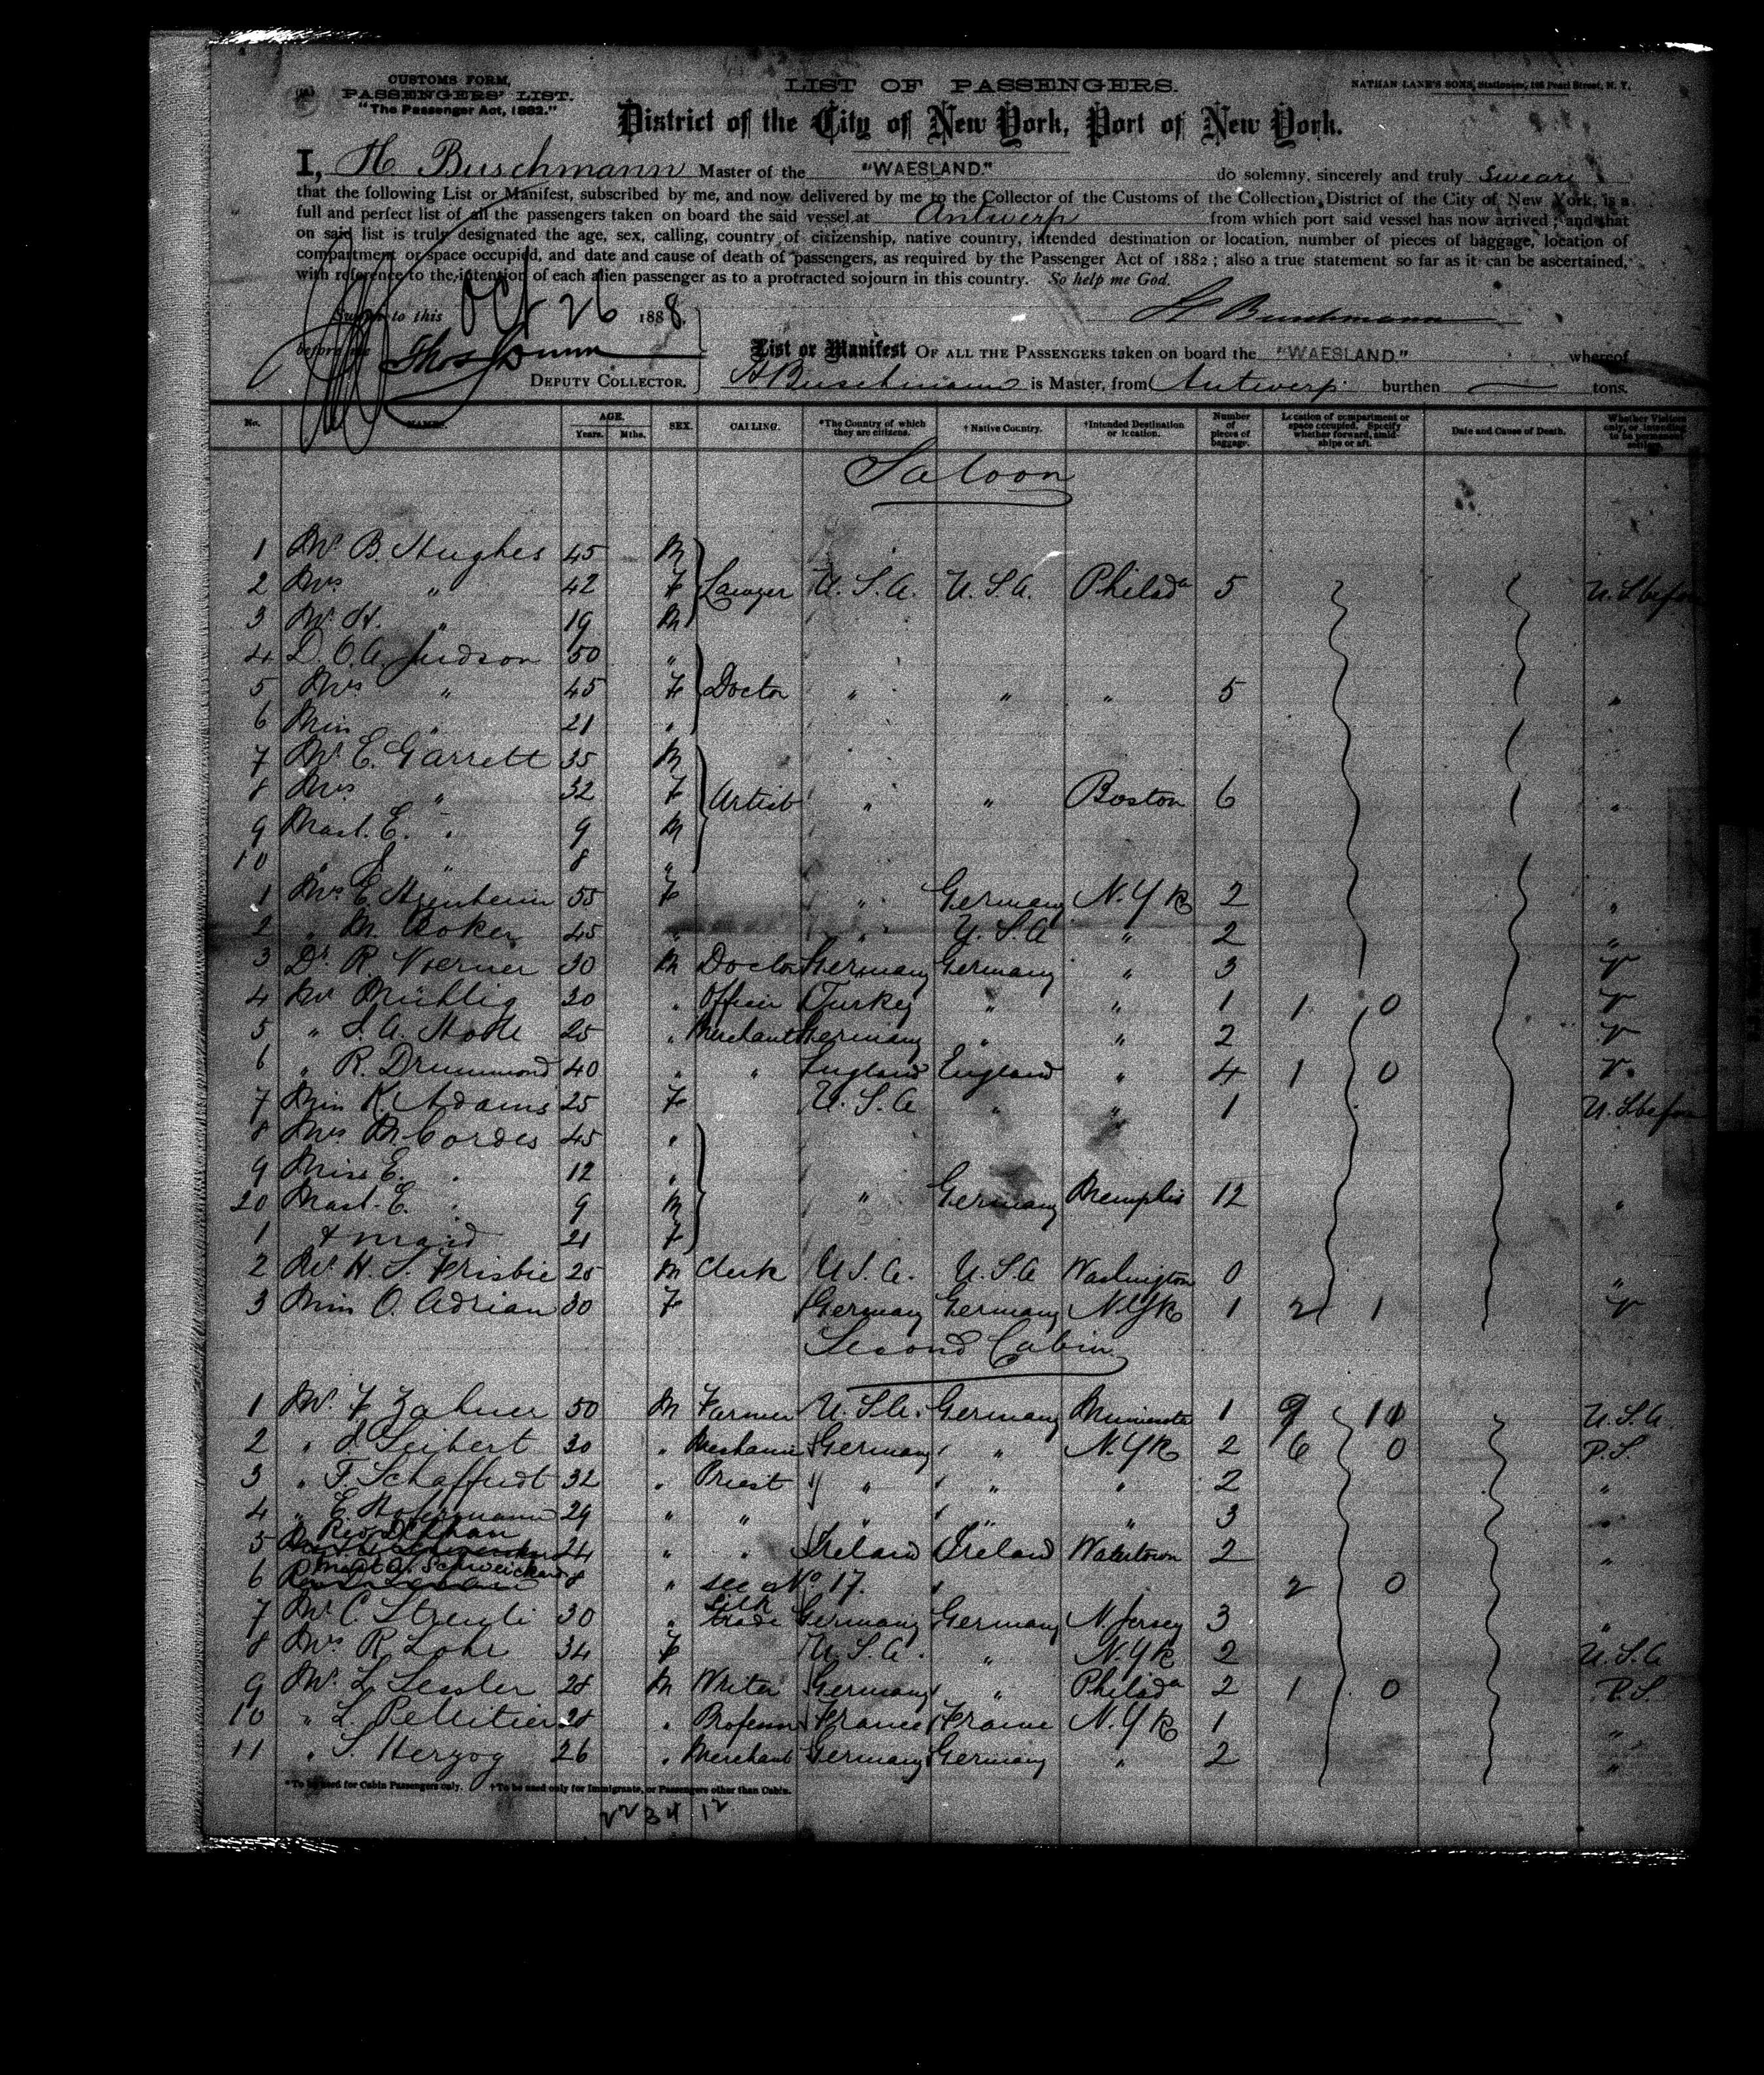 CUSTOMS FORM,
PASSENGERS' LIST.
"The Passenger Act, 1882."
LIST OF PASSENGERS.
NATHAN LANE'S SONS, Stationers, 198 Pearl Street, N. Y.
District of the City of New York, Port of New York.
I, H Buschmann Master of the "WAESLAND." do solemny, sincerely and truly swear
that the following List or Manifest, subscribed by me, and now delivered by me to the Collector of the Customs of the Collection District of the City of New York, is a
full and perfect list of all the passengers taken on board the said vessel at Antwerp from which port said vessel has now arrived; and that
on said list is truly designated the age, sex, calling, country of citizenship, native country, intended destination or location, number of pieces of baggage, location of
compartment or space occupied, and date and cause of death of passengers, as required by the Passenger Act of 1882; also a true statement so far as it can be ascertained,
with reference to the intention of each alien passenger as to a protracted sojourn in this country. So help me God.
to this Oct 26 1888.
H Buschmann
before me Thos Dunn
DEPUTY COLLECTOR.
List or Manifest OF ALL THE PASSENGERS taken on board the "WAESLAND." whereof
H Buschmann is Master, from Antwerp burthen — tons.
No. NAMES. AGE. Years. Mths. SEX. CALLING. *The Country of which they are citizens. †Native Country. †Intended Destination or location. Number of pieces of baggage. Location of compartment or space occupied. Specify whether forward, amidships or aft. Date and Cause of Death. Whether Visitors only, or intending to be permanent settlers.
Saloon
1 Mr B. Hughes 45 M
2 Mrs " 42 F Lawyer U.S.A. U.S.A. Philada 5 U.S. before
3 Mr H. " 19 M
4 D. O.A. Judson 50 "
5 Mrs " 45 F Doctor " " " 5 "
6 Miss " 21 "
7 Mr E. Garrett 35 M
8 Mrs " 32 F Artist " " Boston 6 "
9 Mast. E. " 9 M
10 " " 8 "
1 Mrs E. 55 F " Germany N.Yk 2 "
2 " M. 45 " " U.S.A " 2 "
3 Dr R. Woerner 30 M Doctor Germany Germany " 3 V
4 Mr Mühlig 30 " Officer Turkey " " 1 1 0 V
5 " 25 " Merchant Germany " " 2 V
6 " R. Drummond 40 " " England England " 4 1 0 V.
7 Miss K. Adams 25 F U.S.A " " 1 U.S. before
8 Mrs M. Cordes 45 "
9 Miss E. " 12 "
20 Mast. E. " 9 M " Germany Memphis 12 "
1 & maid 21 F
2 Mr H. S. Frisbie 25 M Clerk U.S.A. U.S.A Washington 0 "
3 Miss O. Adrian 30 F Germany Germany N.Yk 1 2 1 V
Second Cabin
1 Mr F Zahner 50 M Farmer U.S.A. Germany Minnesota 1 9 U.S.A.
2 " J. Seibert 30 " Germany " N.Yk 2 6 0 P.S.
3 " F. 32 " Priest " " " 2 "
4 " E. 29 " " " " " 3 "
5 Rev D. 24 " " Ireland Ireland Watertown 2 "
6 Mast A. Schweickard 8 " see No 17. " 2 0
7 Mr C. Streuli 30 " silk trade Germany Germany N. Jersey 3 "
8 Mrs R. Lohr 34 F U.S.A. " N.Yk 2 U.S.A
9 Mr L. Lessler 28 M Writer Germany " Philada 2 1 0 P.S.
10 " L. Pellitier 28 " Professor France France N.Yk 1 "
11 " S. Herzog 26 " Merchant Germany Germany " 2 "
*To be used for Cabin Passengers only. †To be used only for Immigrants, or Passengers other than Cabin.
22 34 12